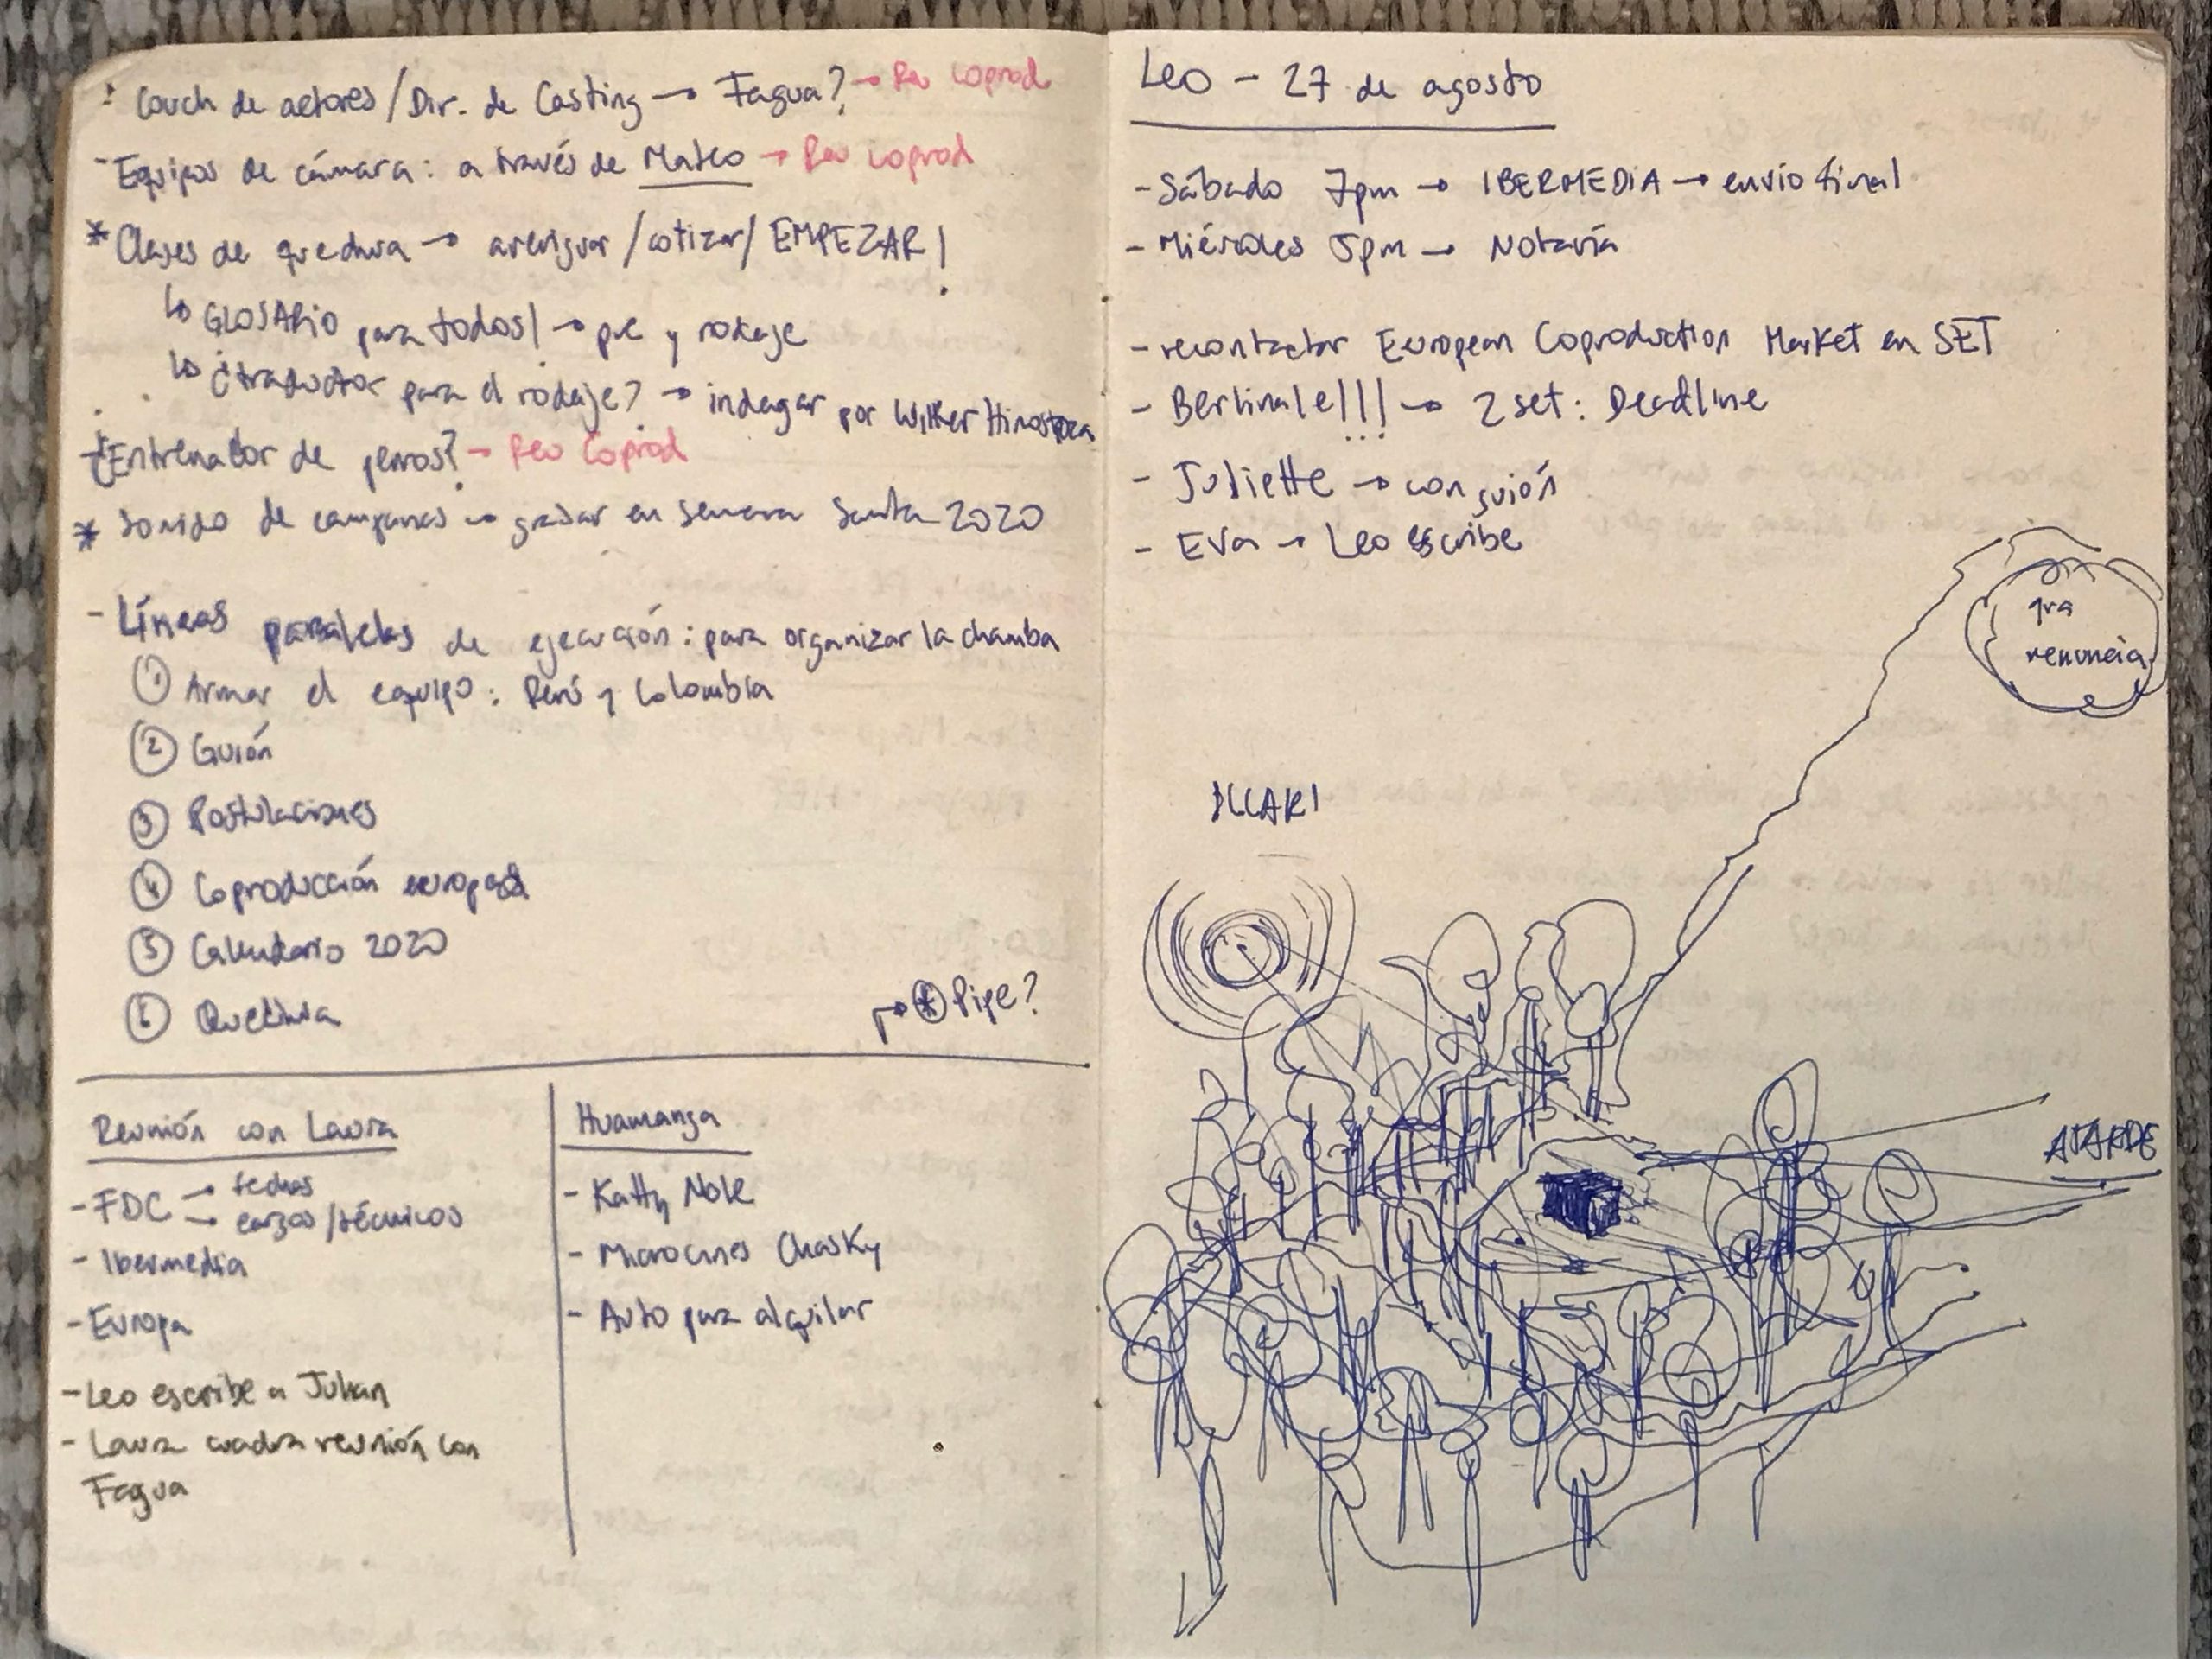 Couch de actores/Dir. de Casting → Fagua? → Reu Coprod
- Equipos de cámara: a través de Mateo → Reu Coprod
* Clases de quechua → averiguar/cotizar/EMPEZAR!
↳ GLOSARIO para todos! → pre y rodaje
↳ ¿traductor para el rodaje? → indagar por Wilker Hinostroza
- ¿Entrenador de perros? → Reu Coprod
* Sonido de campanas → grabar en semana Santa 2020
- Líneas paralelas de ejecución: para organizar la chamba
① Armar el equipo: Perú y Colombia
② Guión
③ Postulaciones
④ Coproducción europea
⑤ Calendario 2020
⑥ Quechua
→ * Pipe?
Reunión con Laura
- FDC → fechas
→ cargos/técnicos
- Ibermedia
- Europa
- Leo escribe a Julian
- Laura cuadra reunión con
Fagua
Huamanga
- Katty Nole
- Microcines Chasky
- Auto para alquilar
Leo - 27 de agosto
- Sábado 7pm → IBERMEDIA → envío final
- Miércoles 5pm → Notaría
- recontactar European Coproduction Market en SET
- Berlinale!!! → 2 set: Deadline
- Juliette → con guión
- Eva → Leo escribe
gra
renuncia
ILLARI
ATARDE